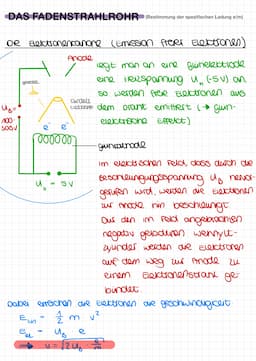 DAS FADENSTRAHLROHR (Bestimmung der spezifischen Ladung e/m)
Die Elektronenkanone (Emission freier Elektronen)
Anode
legt man an eine Glühelektrode
eine Heizspannung U (-5V) an
so werden freie Elektronen aus
dem Draht emittiert (→ Glüh-
elektrischer Effekt)
U_B =
100-
500V
e⁻ e⁻
Glühkathode
U = 5V
Im elektrischen Feld, dass durch die
Beschleunigungsspannung U_B hervor-
gerufen wird, werden die Elektronen
zur Anode hin beschleunigt
Aus den im Feld angebrachten
negativ geladenen Wehneltzy-
linder werden die Elektronen
auf dem Weg zur Anode zu
einem Elektronenstrahl ge-
bündelt
Dabei erreichen die Elektronen die Geschwindigkeit
E_kin = 1/2 m v²
E_el = U_B e
→ v = √(2 U_B · e/m)